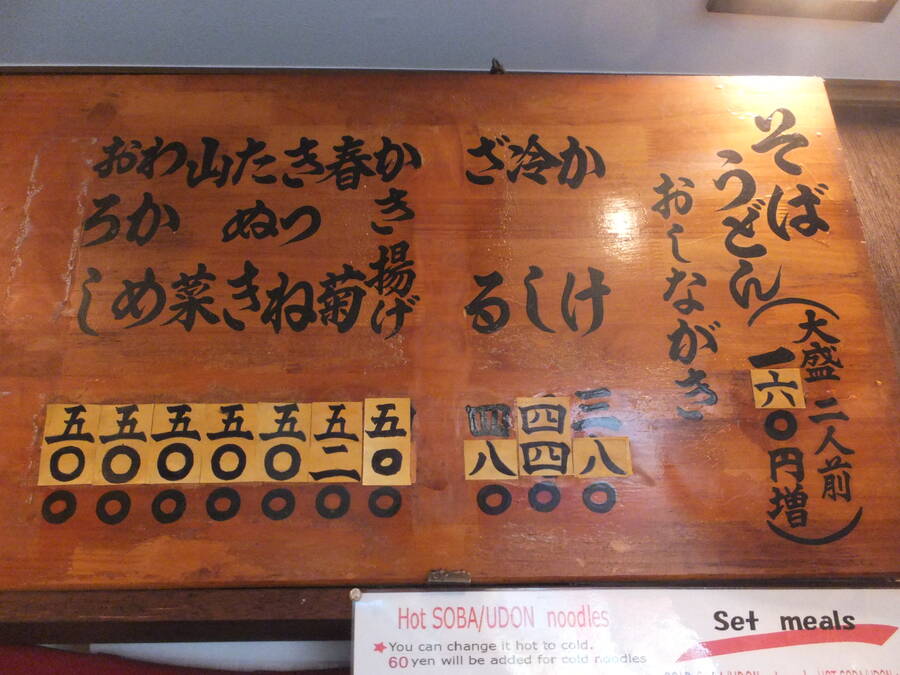 そば
うどん
(大盛 二人前
一六〇円増)
おしながき
かけ 三八〇
冷し 四四〇
ざる 四八〇
かき揚げ 五〇〇
春菊 五二〇
きつね 五〇〇
たぬき 五〇〇
山菜 五〇〇
わかめ 五〇〇
おろし 五〇〇
Hot SOBA/UDON noodles
★You can change it hot to cold.
60 yen will be added for cold noodles
Set meals